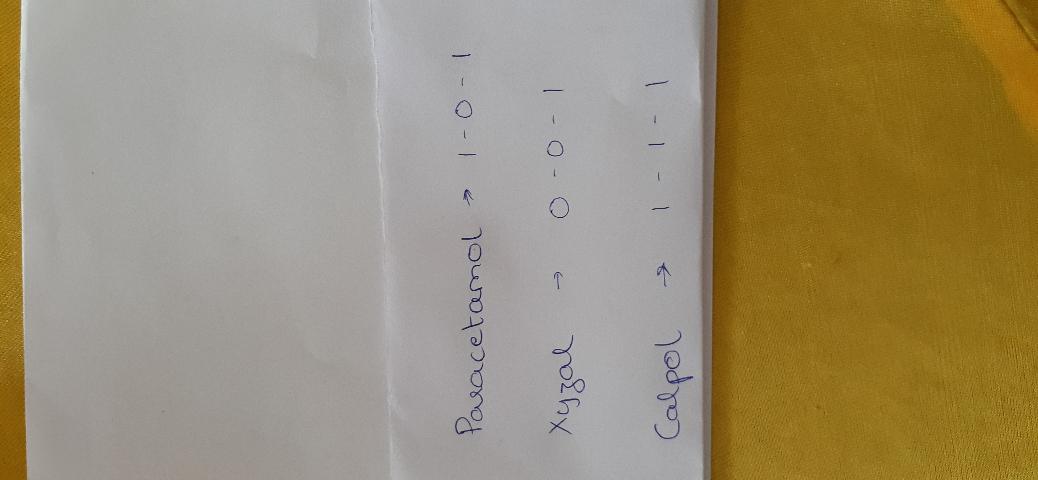 Paracetamol → 1 - 0 - 1
Xyzal → 0 - 0 - 1
Calpol → 1 - 1 - 1